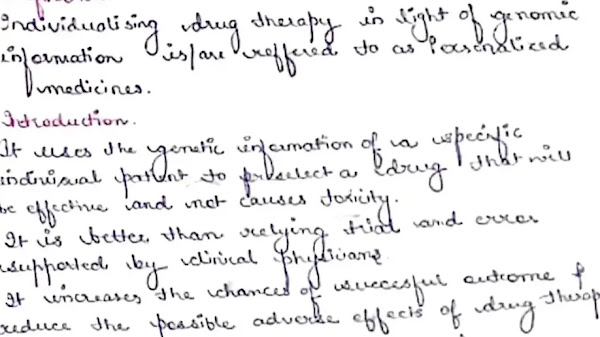 Individualising drug therapy in light of genomic
information is/are reffered to as Personalized
medicines.
Introduction.
It uses the genetic information of a specific
individual patient to preselect a drug that will
be effective and not causes toxicity.
It is better than relying trial and error
supported by clinical physicians
It increases the chances of successful outcome &
reduce the possible adverse effects of drug therap